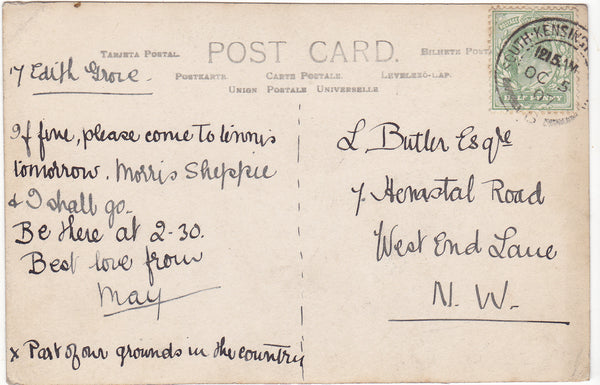 POST CARD.
TARJETA POSTAL.
BILHETE POST
POSTKARTE.
CARTE POSTALE.
LEVELEZŐ-LAP.
UNION POSTALE UNIVERSELLE
SOUTH-KENSING
12.15 AM
OC 5
07
HALF PENNY
17 Edith Grove.
If fine, please come to tennis
tomorrow. Morris Sheppie
& I shall go.
Be there at 2-30.
Best love from
May
x Part of our grounds in the country
L. Butler Esqre
7. Hemstal Road
West End Lane
N. W.